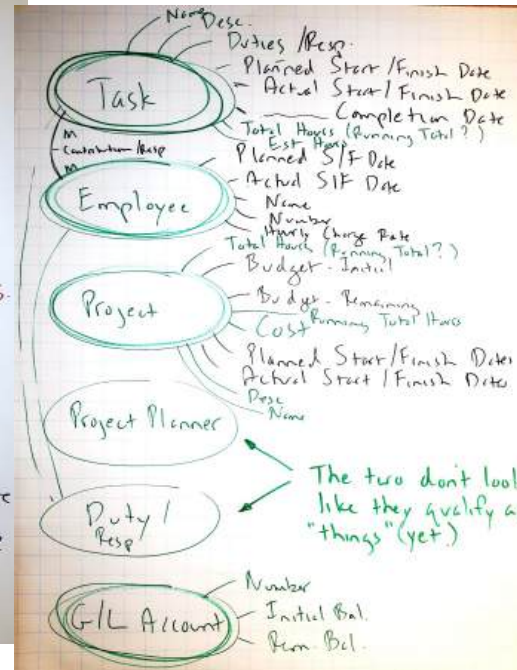 Name
Desc.
Duties /Resp.
Planned Start /Finish Date
Actual Start / Finish Date
Completion Date
Task
Total Hours (Running Total?)
Est Hours
M
Contribution /Resp
M
Planned S/F Date
Actual S/F Date
Name
Number
Hourly Charge Rate
Employee
Total Hours (Running Total?)
Budget - Initial
Budget - Remaining
Running Total Hours
Cost
Project
Planned Start/Finish Dates
Actual Start /Finish Dates
Desc
Name
Project Planner
The two don't look
like they qualify a
"things" (yet)
Duty /
Resp
Number
G/L Account
Initial Bal.
Rem. Bal.